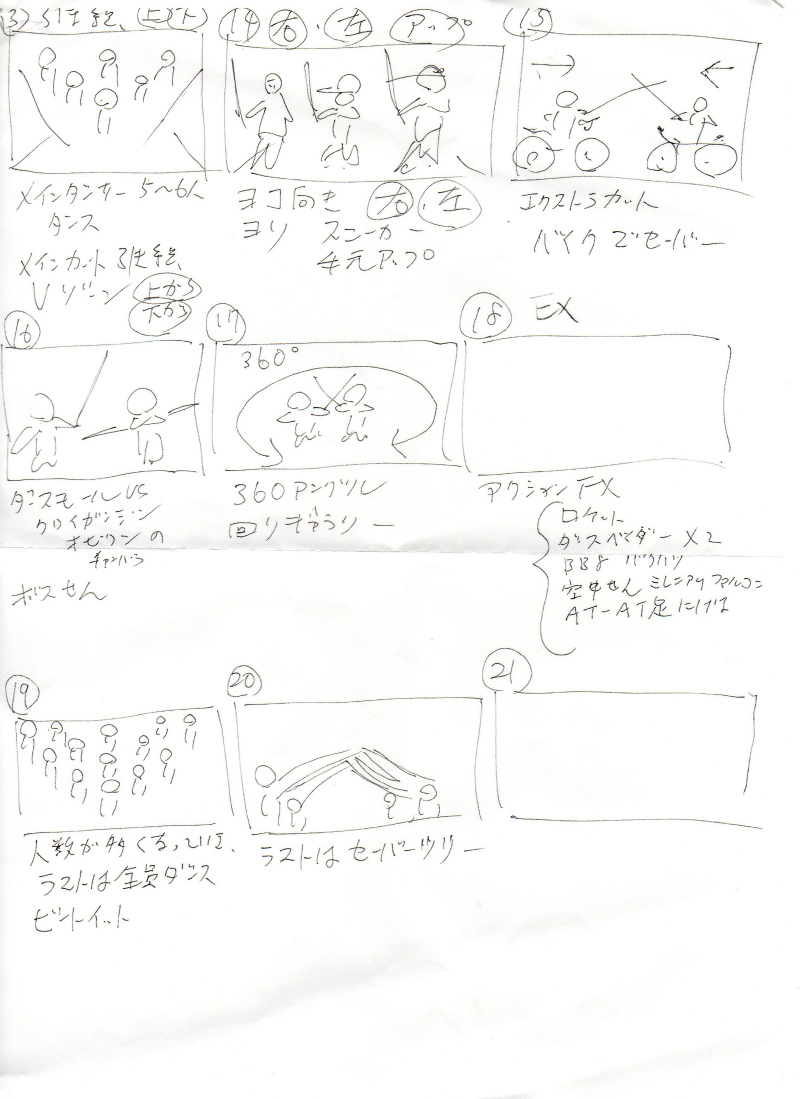 13 引き絵、上下
14 右．左 アップ
15
メインダンサー 5〜6人
ダンス
メインカット 引き絵、
Vゾーン 上から
下から
ヨコ向き 右．左
ヨリ スニーカー
手元アップ
エクストラカット
バイクでセーバー
16
17
360°
18 EX
ダースモール VS
クワイガンジン
オビワンの
チャンバラ
ボスせん
360アングル
回りギャラリー
アクション EX
ロケット
ダースベイダー ×2
BB8
空中せん ミレニアムファルコン
AT-AT足にげる
19
20
21
人数が多くなっていき、
ラストは全員ダンス
ラストはセーバーツリー